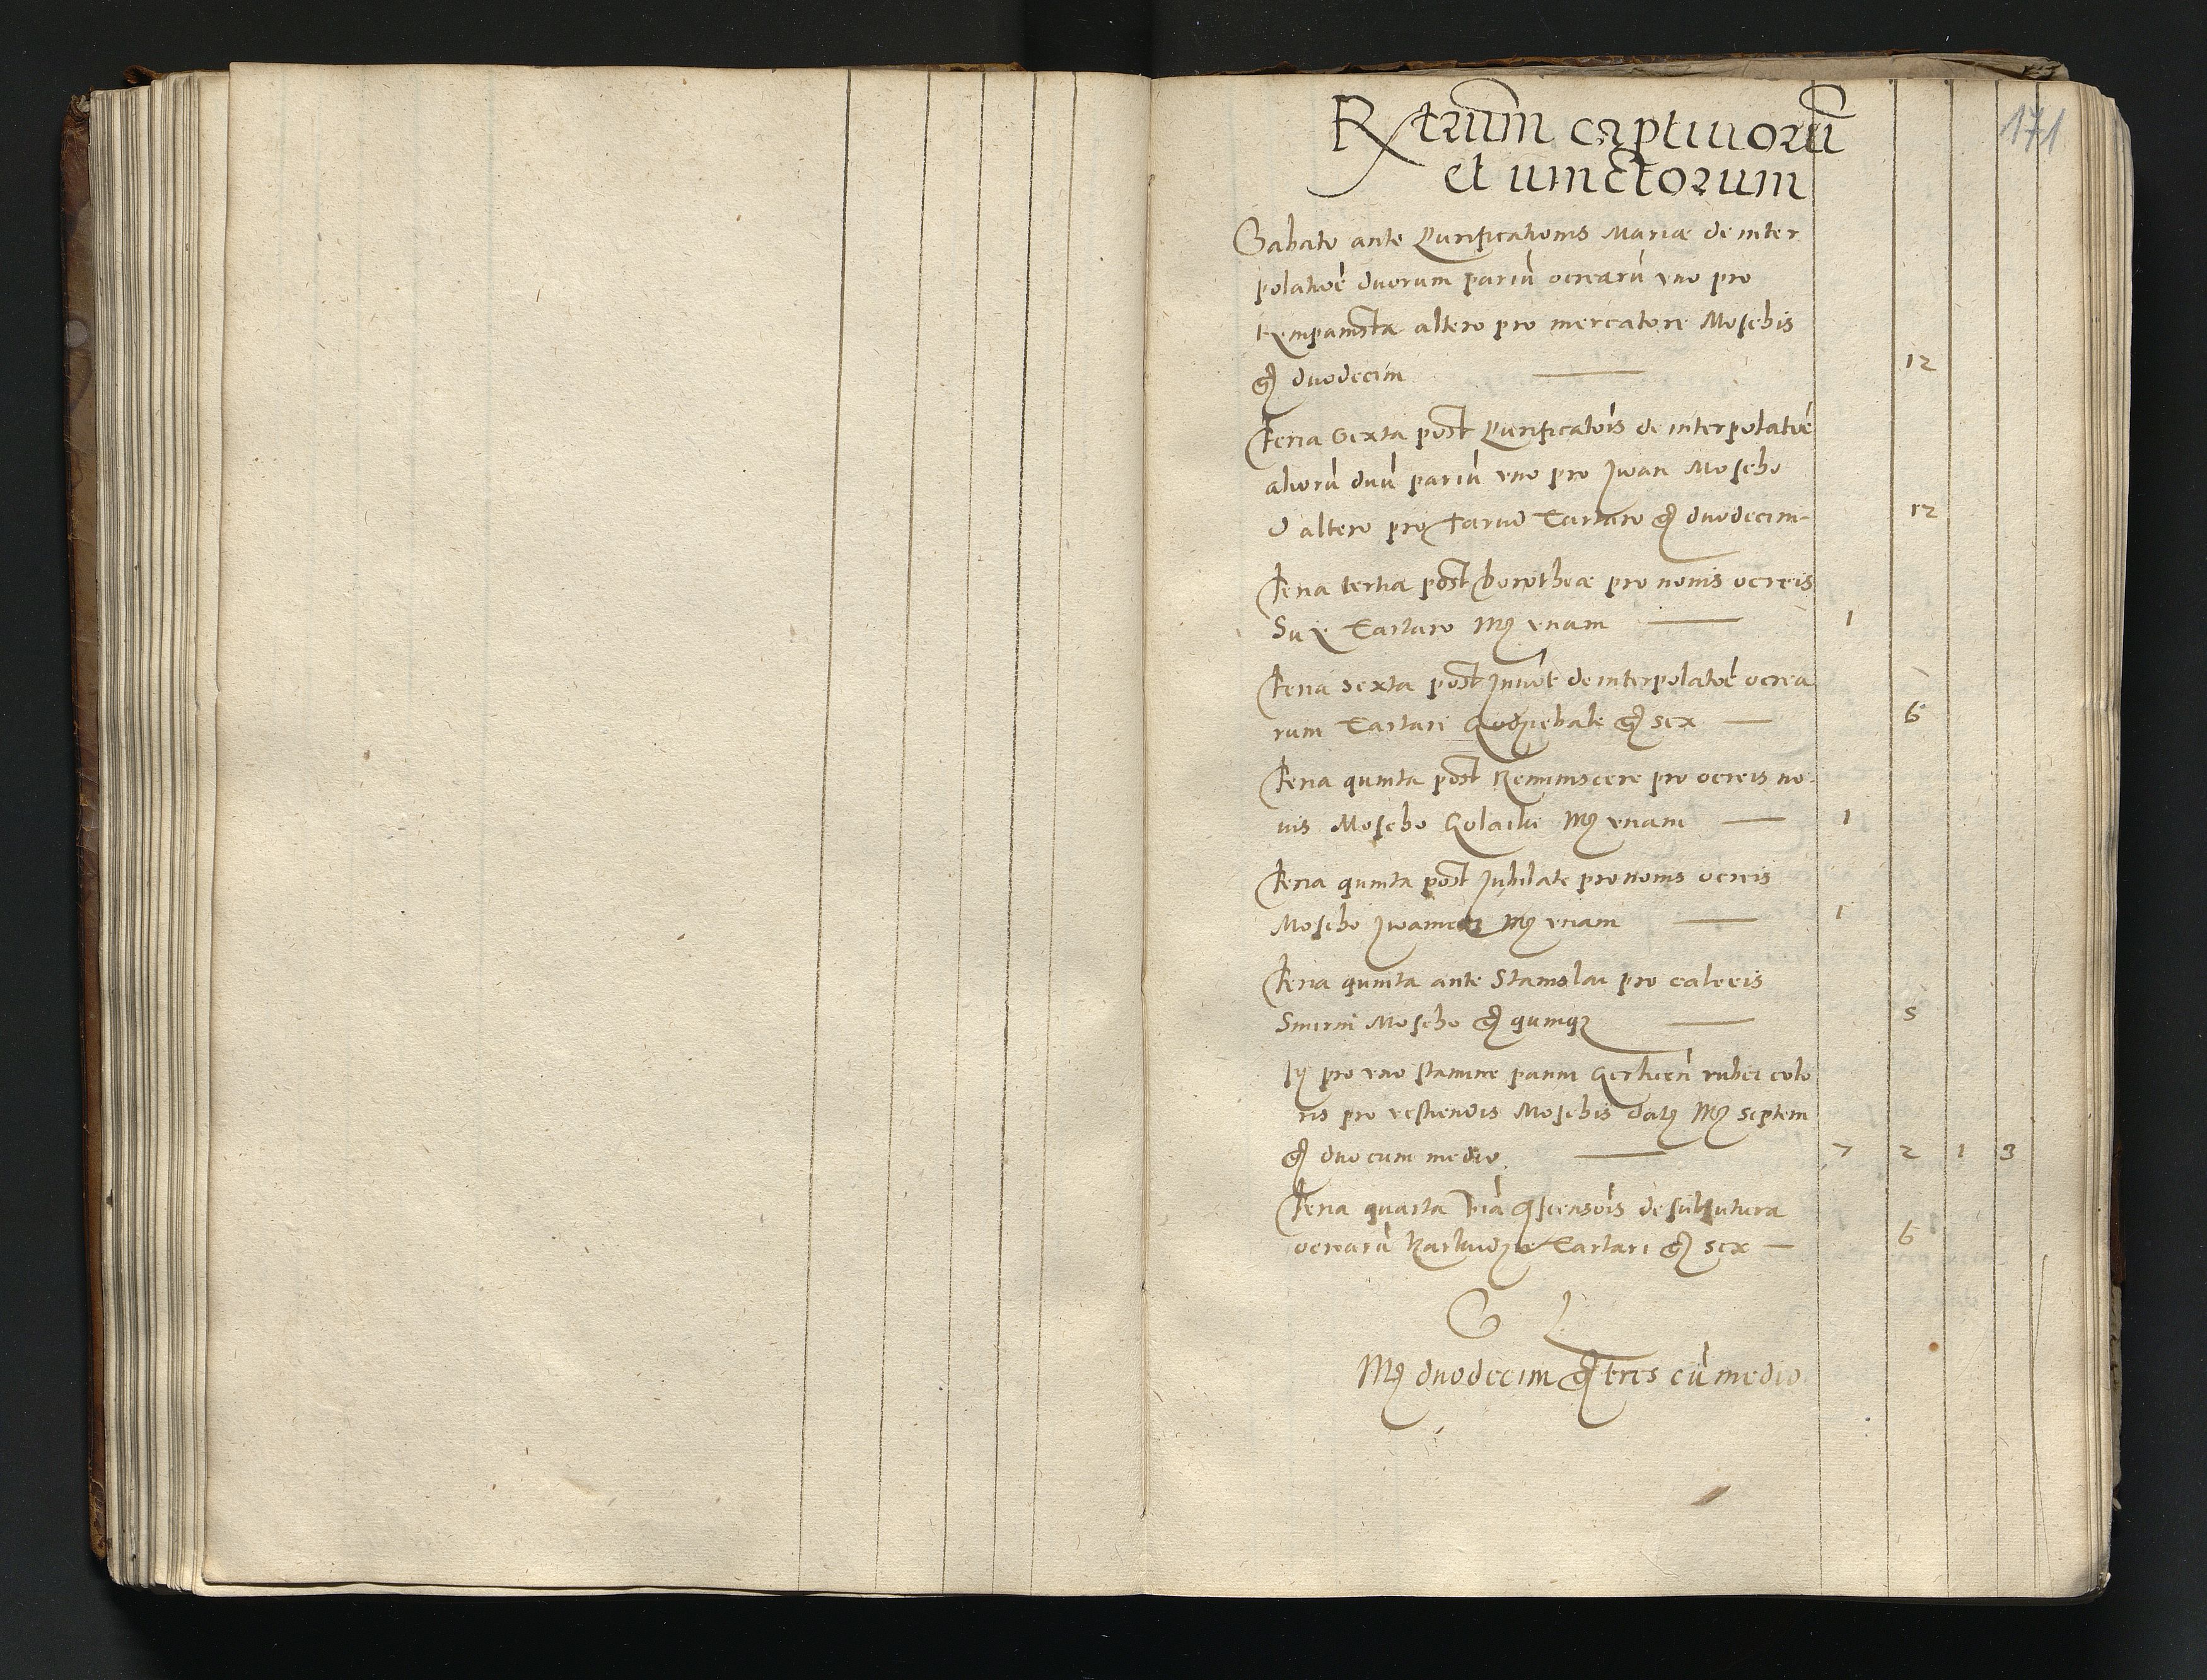 171
Rxtrum captiuorũ
et uinctorum
Sabato ante Purificationis Mariæ de inter
polatioẽ duorum pariũ ocrearũ vno pro
Kempanista altero pro mercatore Moschis
g duodecim — 12
Feria Sexta post Purificatiõis de interpolatiõe
aliorũ duũ pariũ vno pro Jwan Moscho
altero pro Tartaro g duodecim 12
Feria tertia post Dorotheæ pro nouis ocreis
Tartaro Mg vnam — 1
Feria sexta post Inuõt de interpolatoẽ ocrea
rum Tartari g sex — 6
Feria quinta post Reminiscere pro ocreis no
uis Moscho Mg vnam — 1
Feria quinta post Jubilate pro nouis ocreis
Moscho Mg vnam — 1
Feria quinta ante Stanislai pro calceis
Smirni Moscho g quinqz — 5
It pro vno stamine panni rubei colo
ris pro vestiendis Moschis datz Mg septem
g duo cum medio — 7 2 1 3
Feria quarta Ascensõis de subsutura
ocrearũ Tartari g sex — 6
S L
Mg duodecim g tres cũ medio